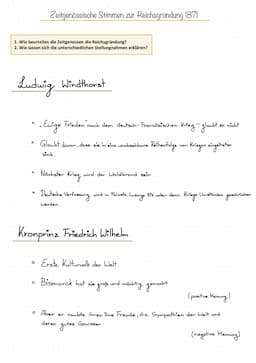 Zeitgenössische Stimmen zur Reichsgründung 1871
1. Wie beurteilen die Zeitgenossen die Reichsgründung?
2. Wie lassen sich die unterschiedlichen Stellungnahmen erklären?
Ludwig Windthorst
• "Ewige Frieden" nach dem deutsch-Französischen Krieg – glaubt er nicht
• Glaubt daran, dass sie in eine unabsehbare Reihenfolge von Kriegen eingetreten
sind.
• Nächster Krieg wird der Weltbrand sein
• Deutsche Verfassung wird in
werden.
Kronprinz Friedrich Wilhelm
• Erste Kulturvolk der Welt
• Bismarck hat sie groß und mächtig gemacht
(positive Meinung)
• Aber er raubte ihnen ihre Freunde, die Sympathien der Welt und
deren gutes Gewissen
(negative Meinung)